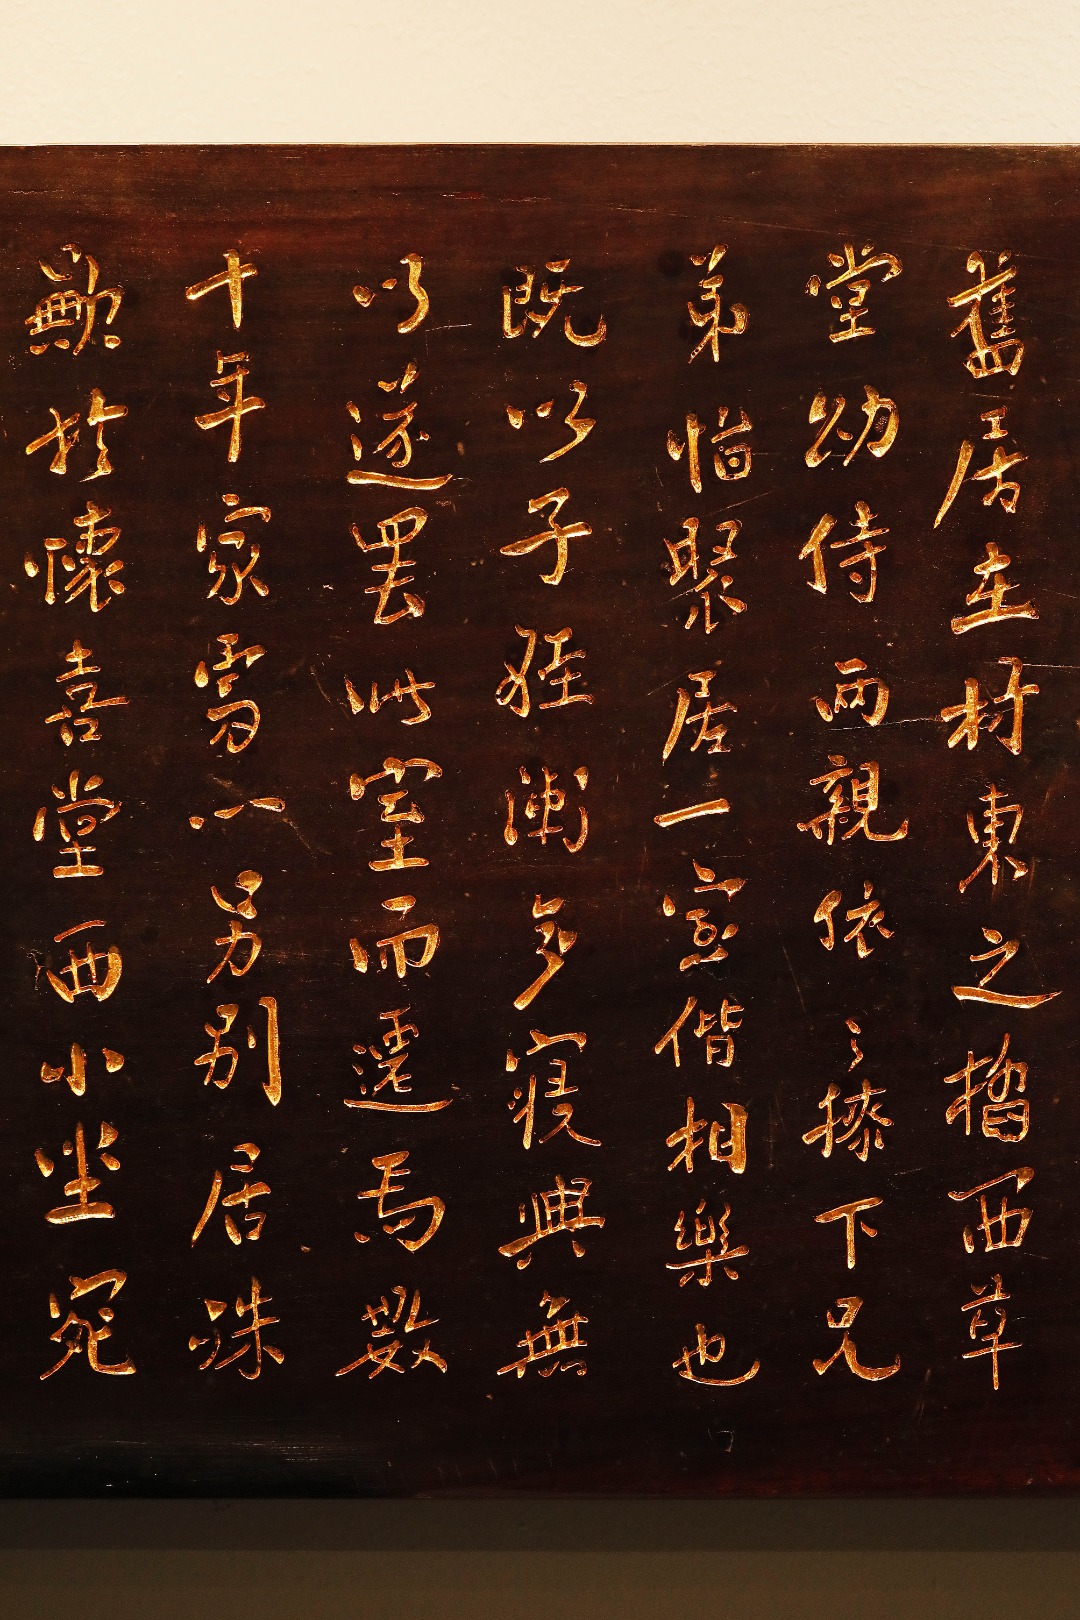 舊居在村東之榴西草
堂幼侍兩親依〻膝下兄
弟惜聚居一室偕相樂也
既以子姪漸多寢興無
所遂罷此室而遷焉數
十年家另别居殊
歉於懷喜堂西小坐宛